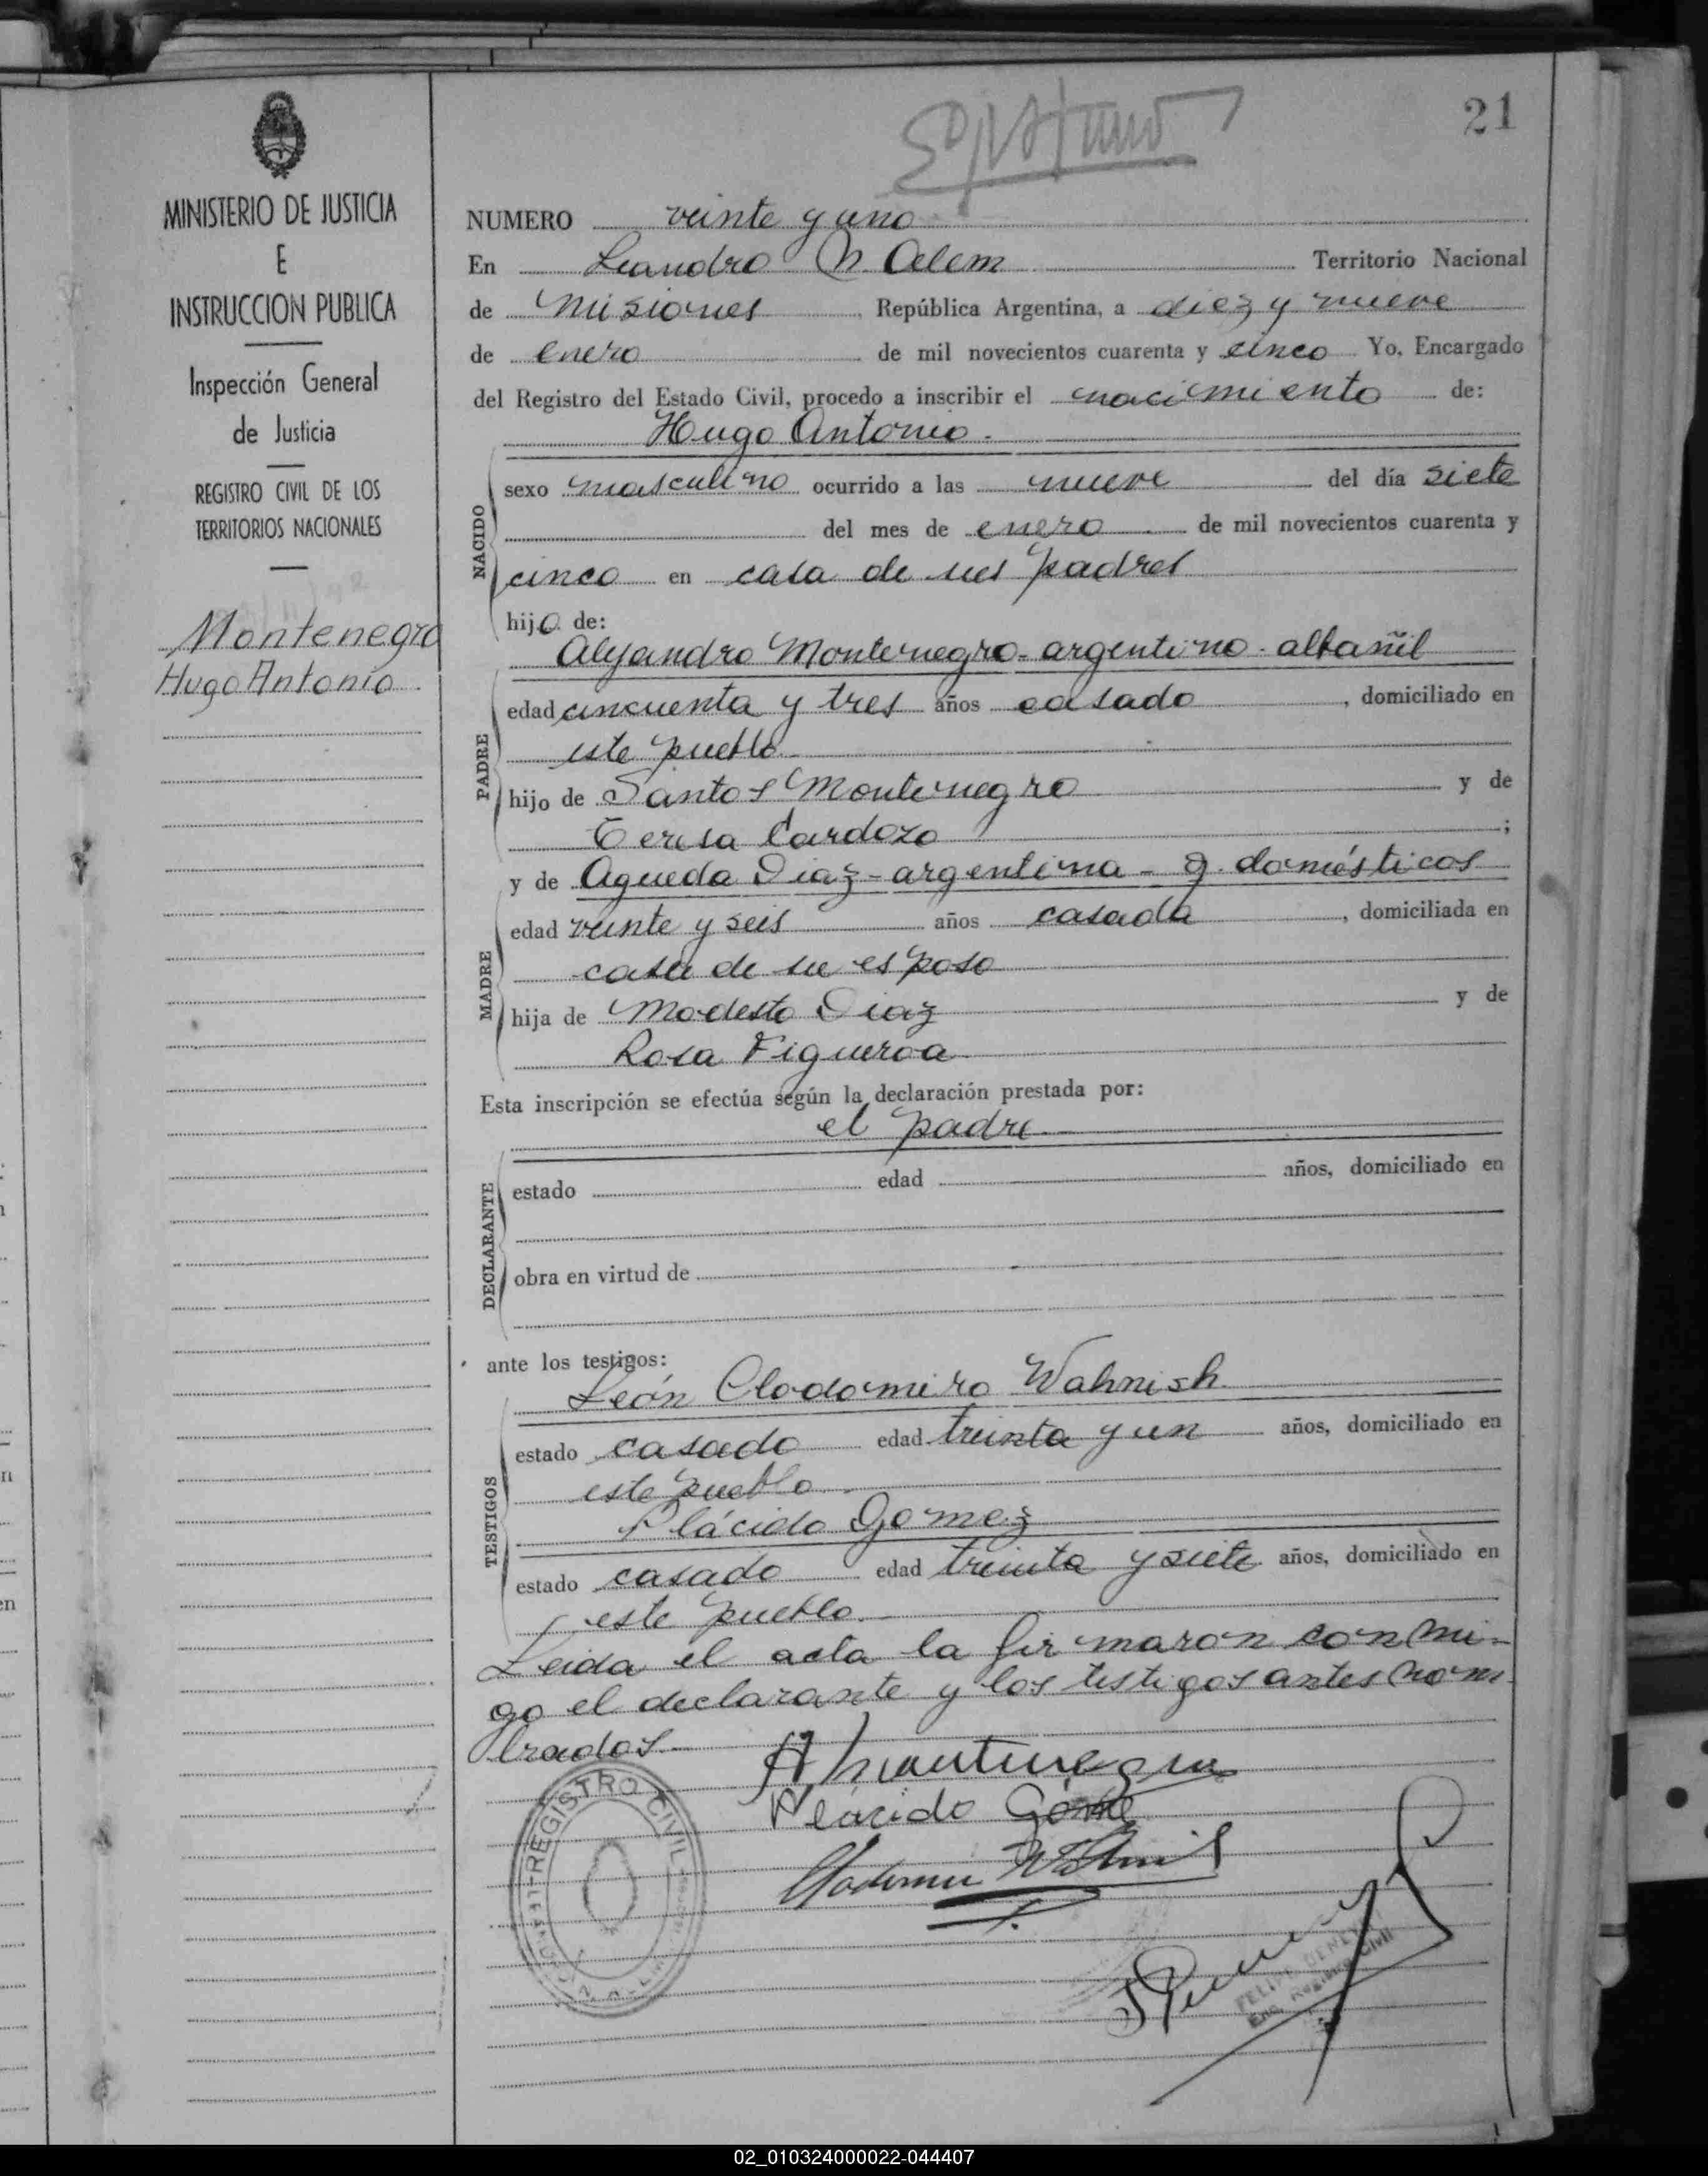 21
MINISTERIO DE JUSTICIA
E
INSTRUCCION PUBLICA
Inspección General
de Justicia
REGISTRO CIVIL DE LOS
TERRITORIOS NACIONALES
Montenegro
Hugo Antonio
NUMERO veinte y uno
En Leandro N. Alem Territorio Nacional
de Misiones, República Argentina, a diez y nueve
de enero de mil novecientos cuarenta y cinco Yo, Encargado
del Registro del Estado Civil, procedo a inscribir el nacimiento de:
Hugo Antonio.
NACIDO
sexo masculino ocurrido a las nueve del día siete
del mes de enero de mil novecientos cuarenta y
cinco en casa de sus padres
hijo de:
PADRE
Alejandro Montenegro - argentino - albañil
edad cincuenta y tres años casado, domiciliado en
este pueblo
hijo de Santos Montenegro y de
Teresa Cardozo;
MADRE
y de Agueda Diaz - argentina - q. domésticos
edad veinte y seis años casada, domiciliada en
casa de su esposo
hija de Modesto Diaz y de
Rosa Figueroa
Esta inscripción se efectúa según la declaración prestada por:
el padre
DECLARANTE
estado edad años, domiciliado en
obra en virtud de
ante los testigos:
TESTIGOS
León Clodomiro Wahnish
estado casado edad treinta y un años, domiciliado en
este pueblo
Plácido Gomez
estado casado edad treinta y siete años, domiciliado en
este pueblo.
Leida el acta la firmaron conmi-
go el declarante y los testigos antes nom
brados.
A Montenegro
Placido Gome
REGISTRO CIVIL
Enc. Registro Civil
02_010324000022-044407